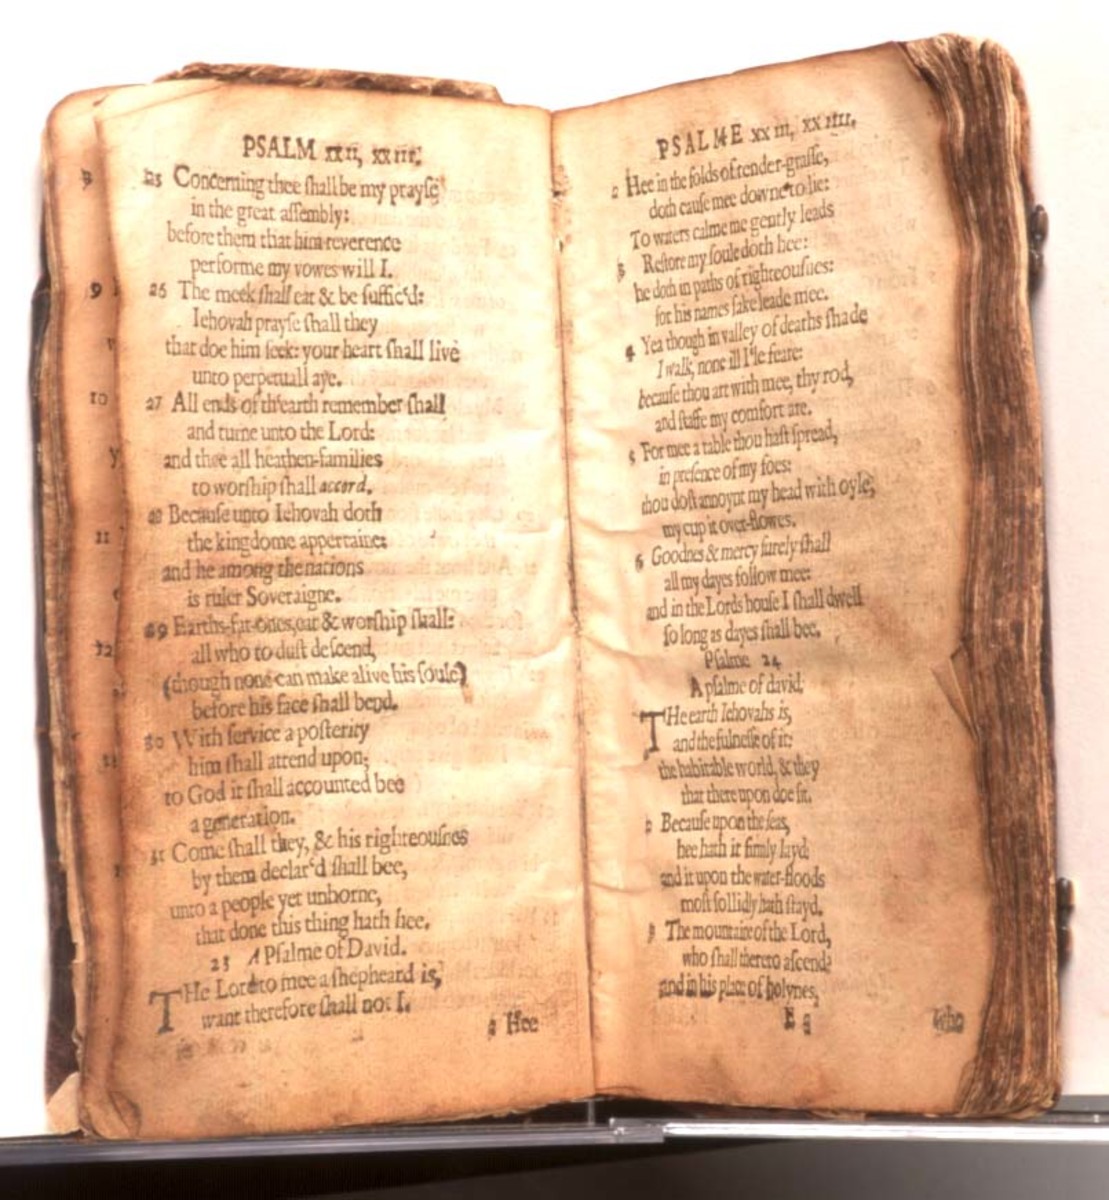 PSALM xxii, xxiii.
25 Concerning thee ſhall be my prayſe
in the great aſſembly:
before them that him reverence
performe my vowes will I.
26 The meek ſhall eat & be ſuffic'd:
Iehovah prayſe ſhall they
that doe him ſeek: your heart ſhall live
unto perpetuall aye.
27 All ends of th'earth remember ſhall
and turne unto the Lord:
and thee all heathen-families
to worſhip ſhall accord.
28 Becauſe unto Iehovah doth
the kingdome appertaine:
and he among the nations
is ruler Soveraigne.
29 Earths-fat-ones, eat & worſhip ſhall:
all who to duſt deſcend,
(though none can make alive his ſoule)
before his face ſhall bend.
30 With ſervice a poſterity
him ſhall attend upon;
to God it ſhall accounted bee
a generation.
31 Come ſhall they, & his righteouſnes
by them declar'd ſhall bee,
unto a people yet unborne,
that done this thing hath hee.
23 A Pſalme of David.
THe Lord to mee a ſhepheard is,
want therefore ſhall not I.
2 Hee
PSALME xxiii, xxiiii.
2 Hee in the folds of tender-graſſe,
doth cauſe mee downe to lie:
To waters calme me gently leads
3 Reſtore my ſoule doth hee:
he doth in paths of righteouſnes:
for his names ſake leade mee.
4 Yea though in valley of deaths ſhade
I walk, none ill I'le feare:
becauſe thou art with mee, thy rod,
and ſtaffe my comfort are.
5 For mee a table thou haſt ſpread,
in preſence of my foes:
thou doſt annoynt my head with oyle,
my cup it over-flowes.
6 Goodnes & mercy ſurely ſhall
all my dayes follow mee:
and in the Lords houſe I ſhall dwell
ſo long as dayes ſhall bee.
Pſalme 24
A pſalme of david.
THe earth Iehovahs is,
and the fulneſſe of it:
the habitable world, & they
that there upon doe ſit.
2 Becauſe upon the ſeas,
hee hath it firmly layd:
and it upon the water-floods
moſt ſollidly hath ſtayd.
3 The mountaine of the Lord,
who ſhall thereto aſcend?
and in his place of holynes,
E
Who
9
10
11
12